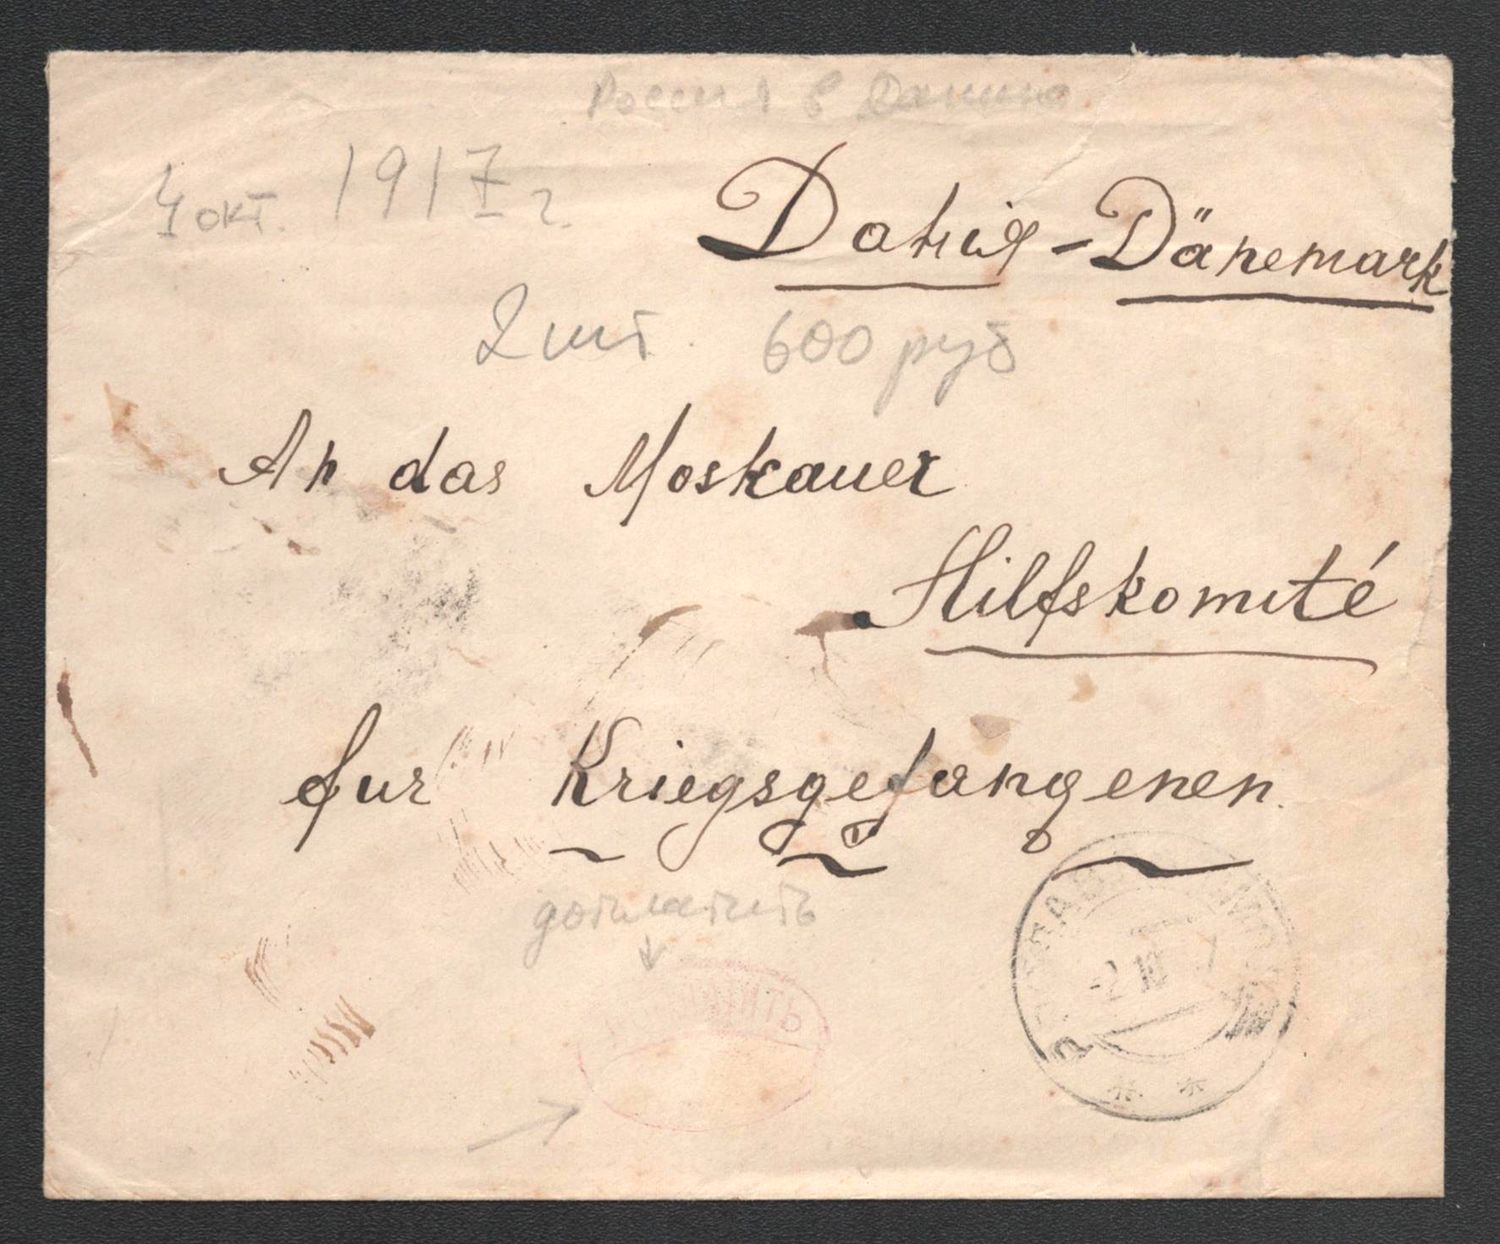 Россия в Данию
4 окт. 1917 г.
Данія - Dänemark
2 шт. 600 руб
An das Moskauer
Hilfskomité
fur Kriegsgefangenen.
доплатить
-2.10.